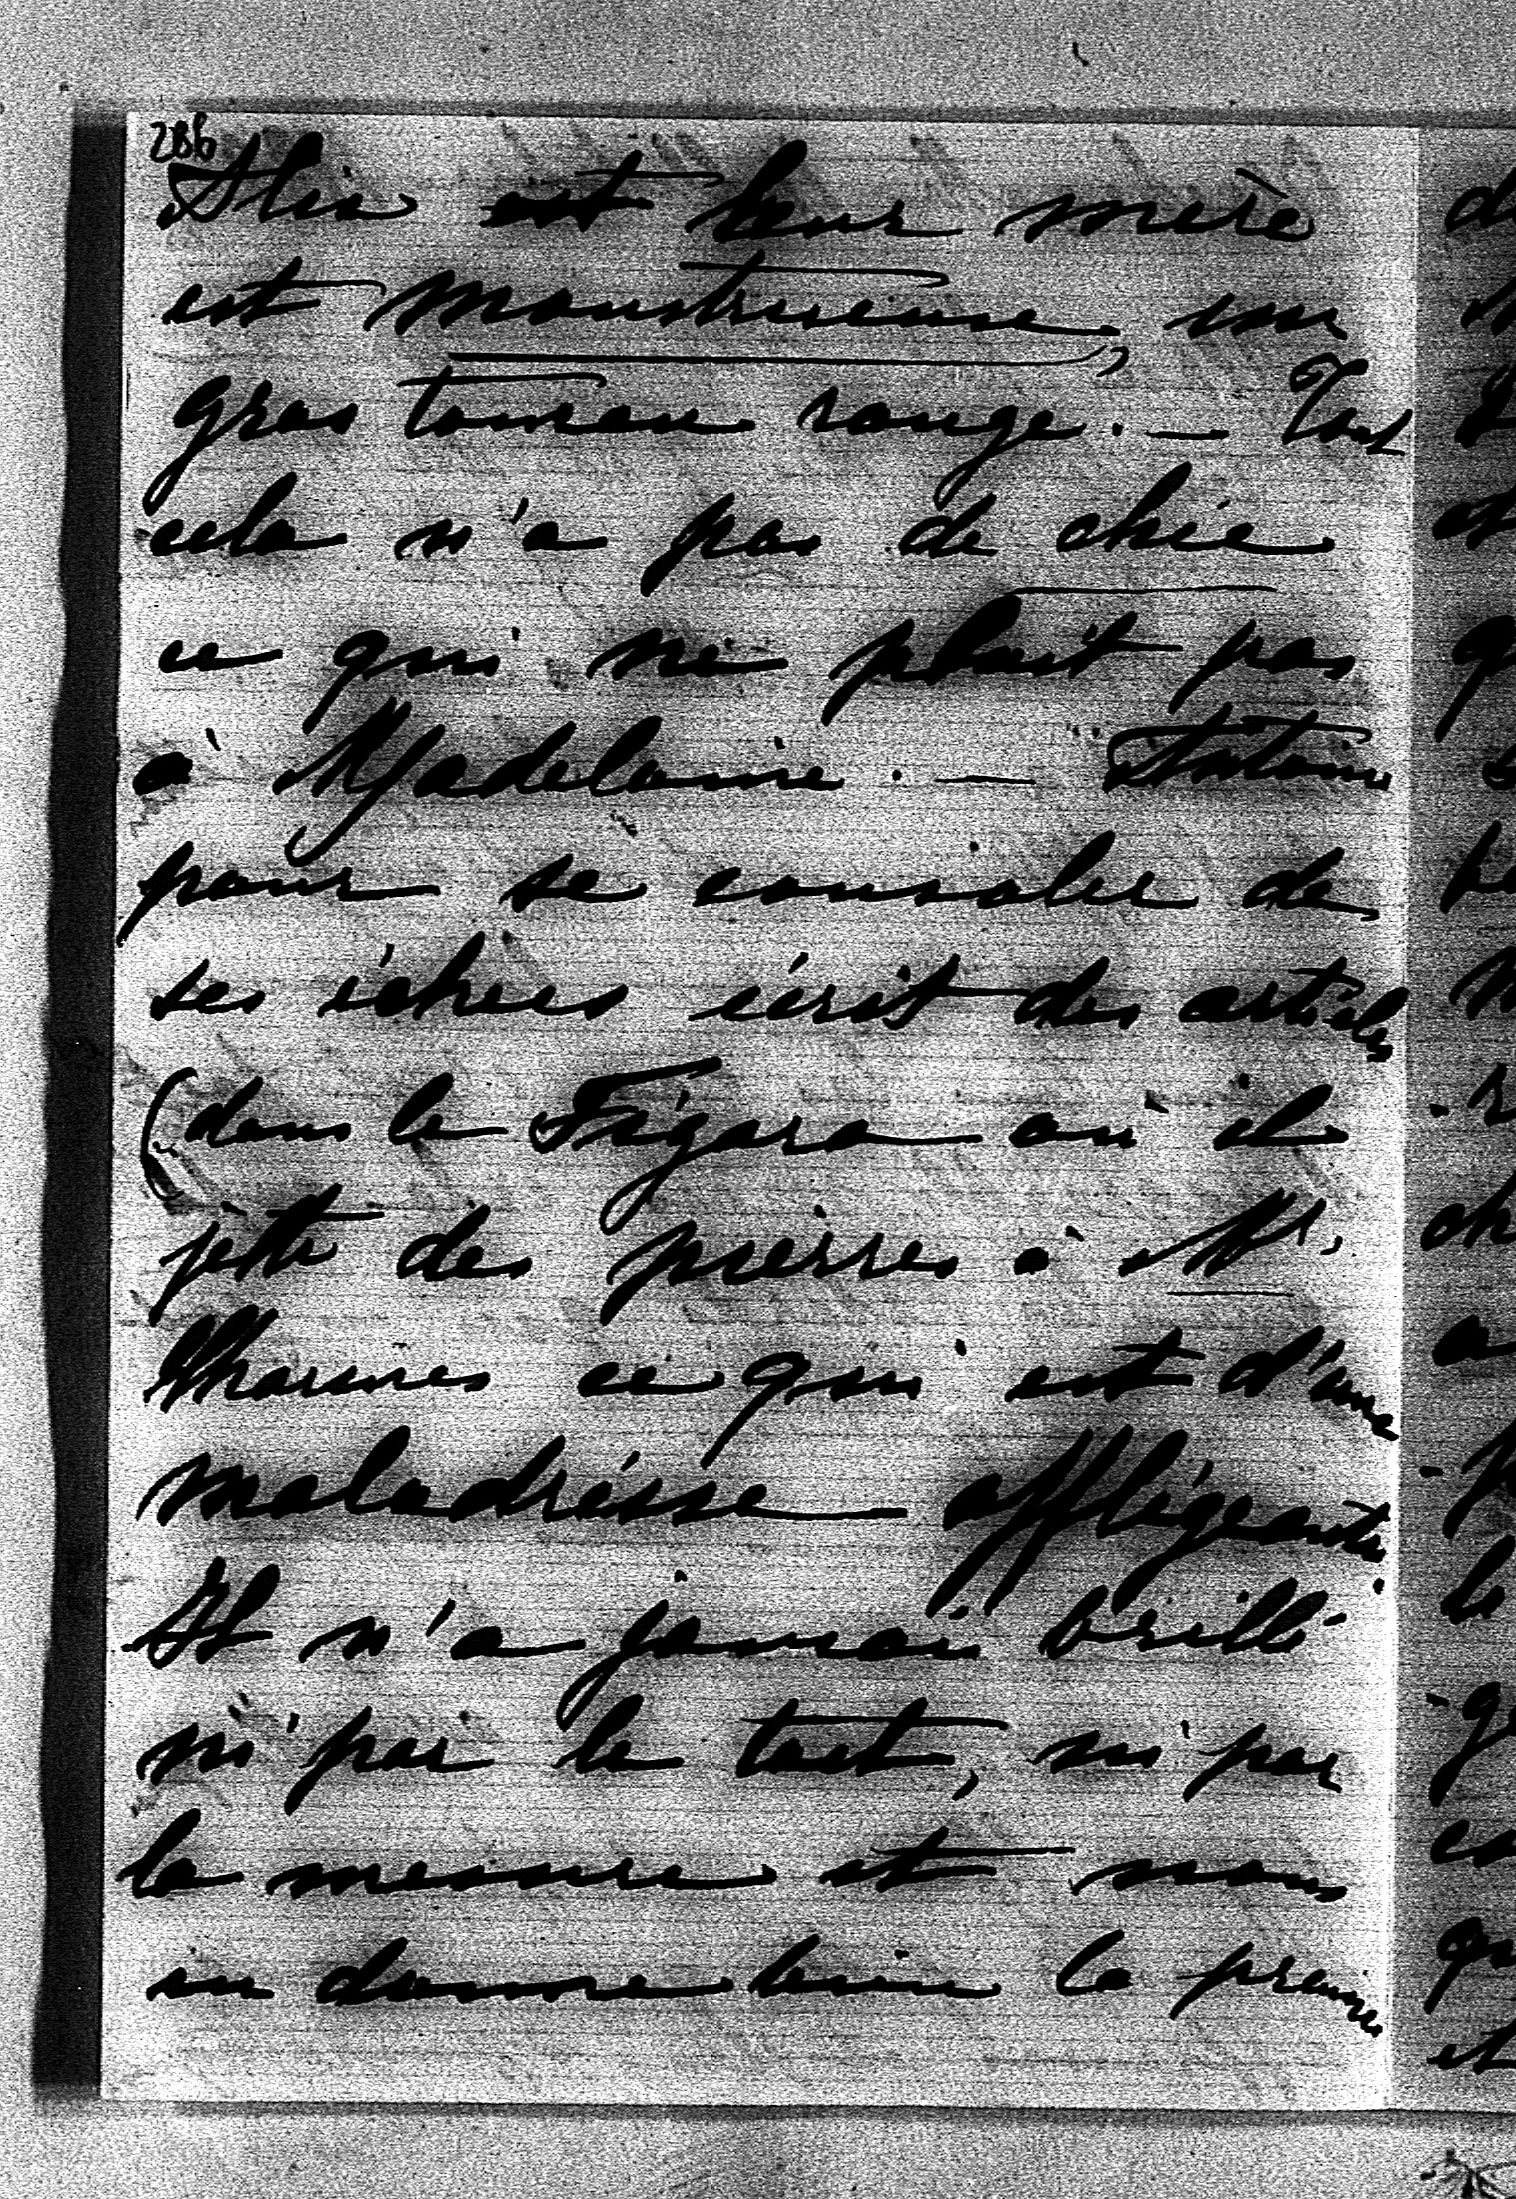 286
Alix est leur mère
est monstrueuse, un
gros tonneau rouge. — Tout
cela n'a pas de chic
ce qui ne plait pas
à Madelaine. — Antoine
pour se consoler de
ses échecs écrit des articles
(dans le Figaro où il
jette des pierres à Mr.
Tharsnes ce qui est d'une
maladresse affligeante
Il n'a jamais brillé
ni par le tact, ni par
la mesure et nous
en donne bien la preuve